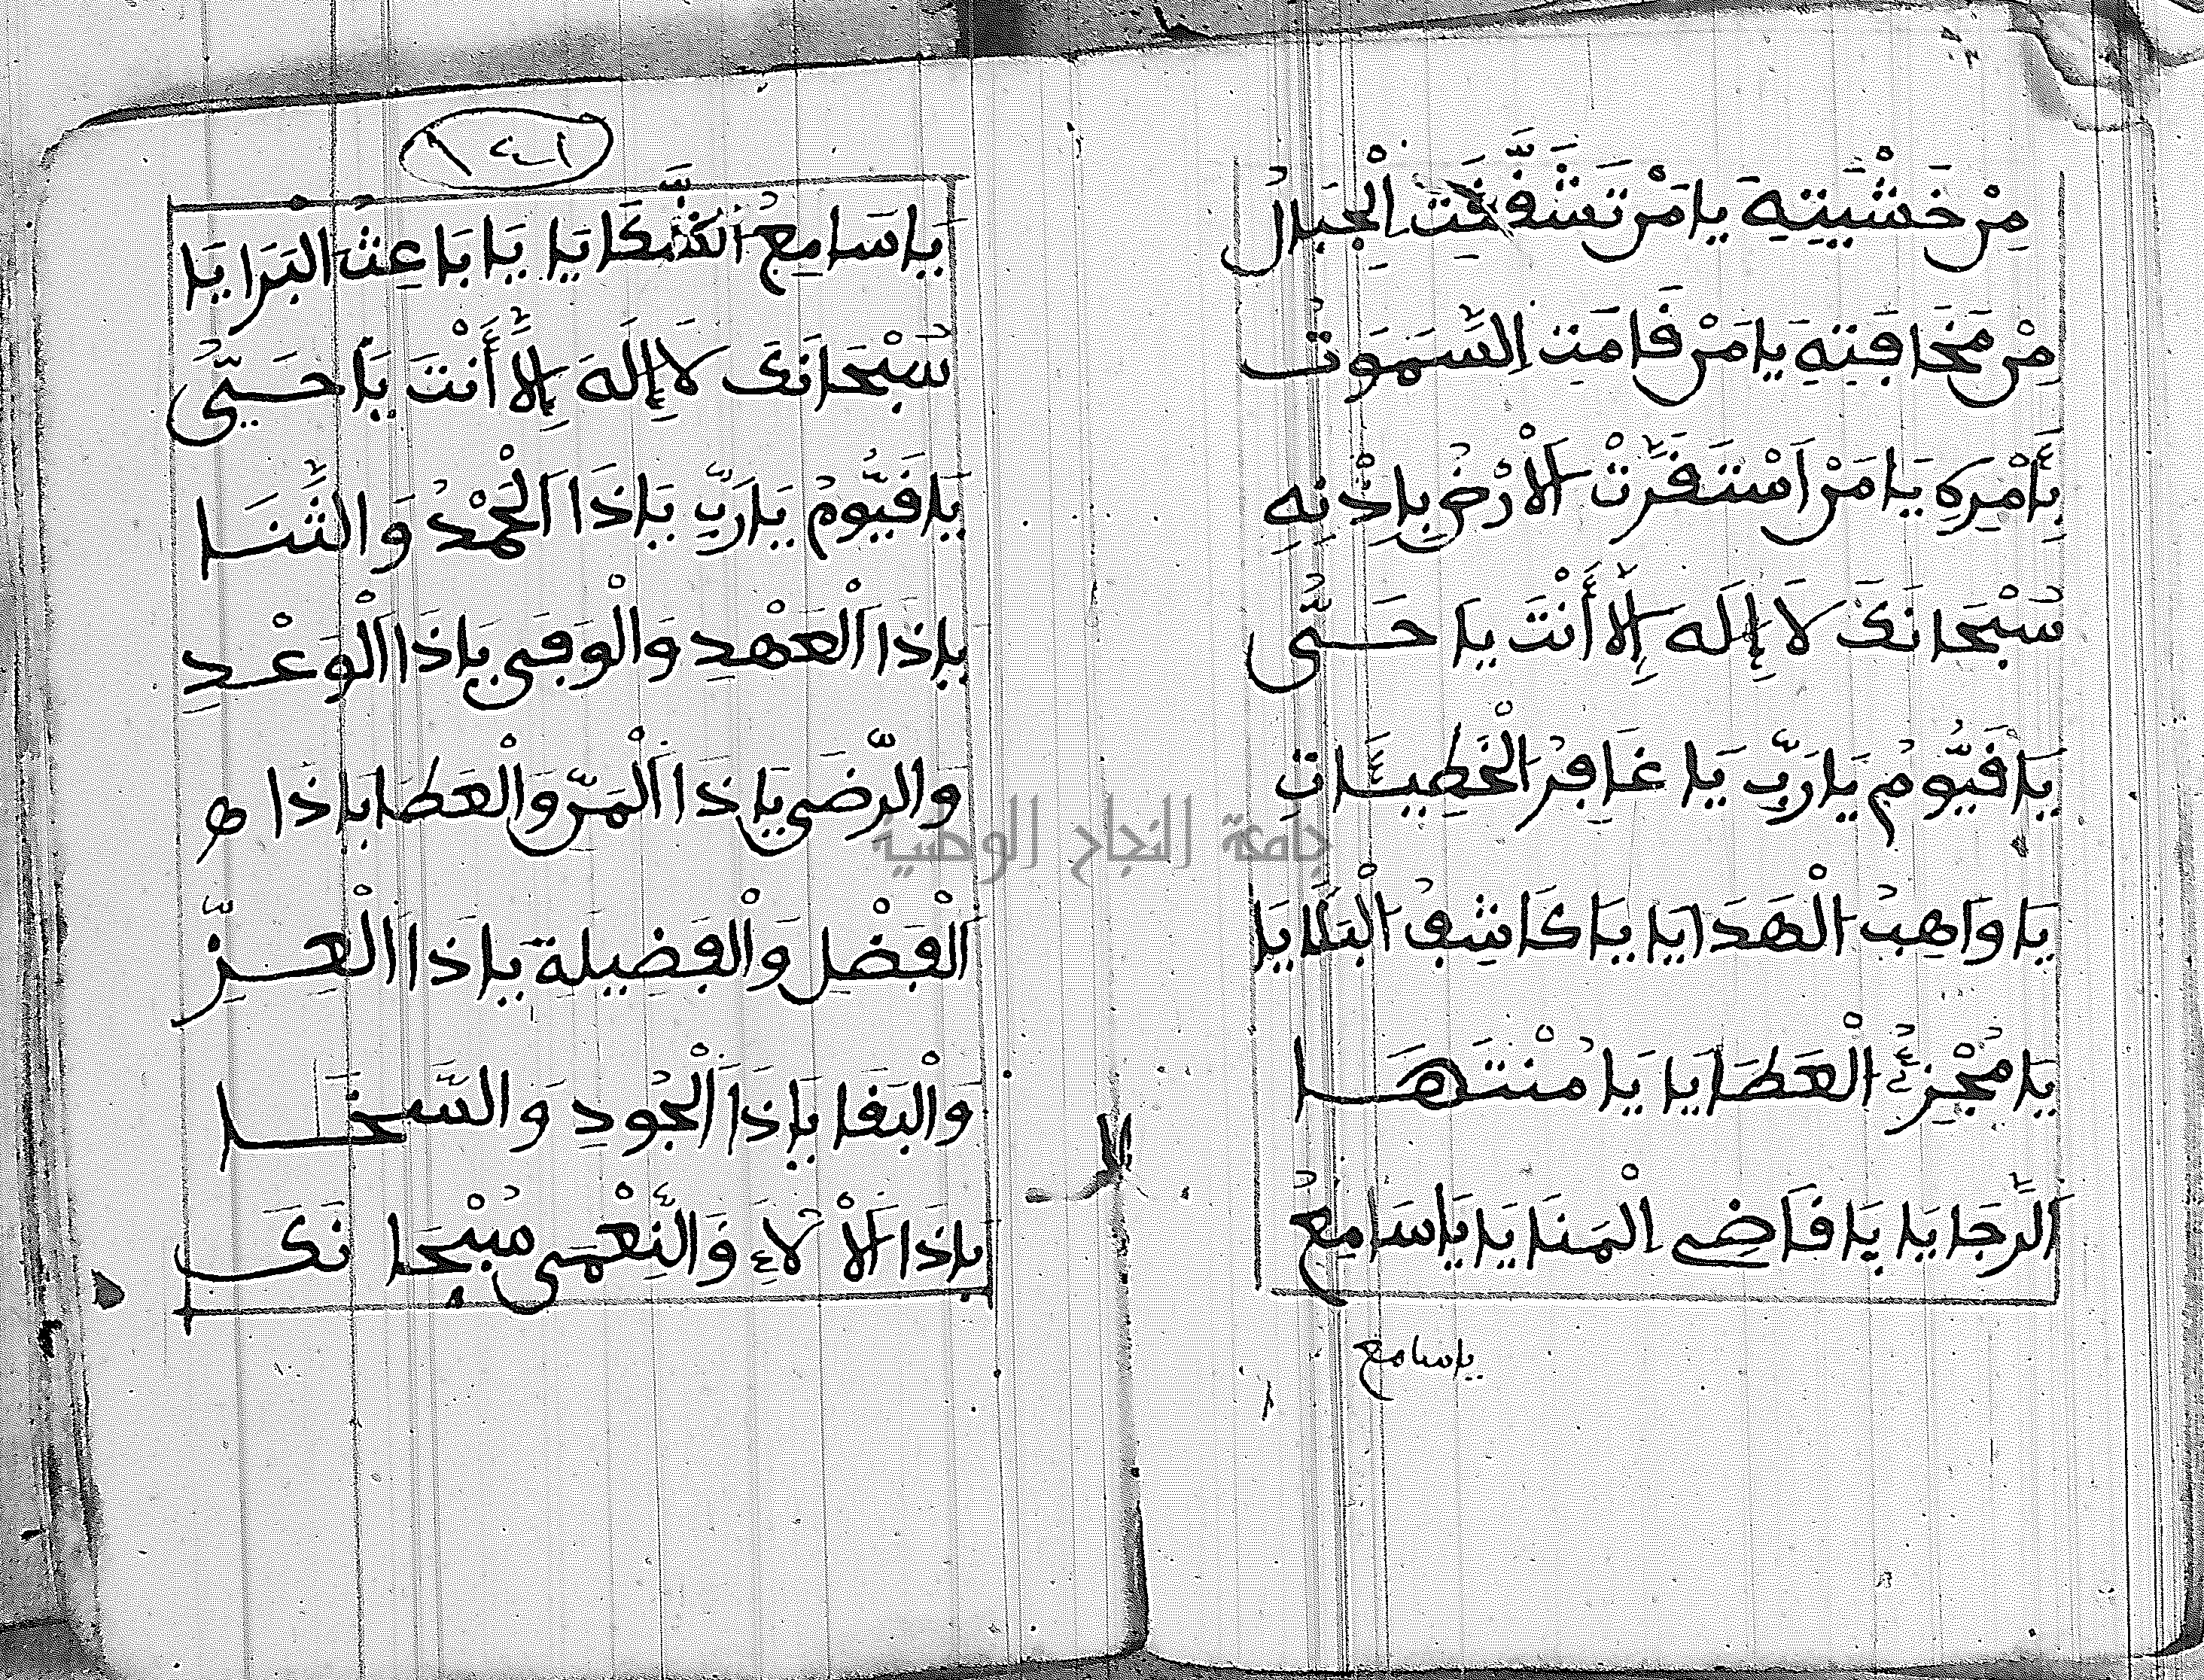 مِنْ خَشْيَتِهِ يَامَنْ تَشَقَّقَتِ الْجِبَالُ
مِنْ مَخَافَتِهِ يَا مَنْ قَامَتِ السَّمَوٰتُ
بِأَمْرِهِ يَا مَنْ اَسْتَقَرَّتْ اَلْأَرْضُ بِإِذْنِهِ
سُبْحَانَكَ لَا إِلَهَ إِلَّا أَنْتَ يَا حَيُّ
يَا قَيُّومُ يَا رَبِّ يَا غَافِرُ الْخَطِيـَٔاتِ
يَا وَاهِبُ الْهَدَايَا يَا كَاشِفُ الْبَلَايَا
يَا مُجْزِءُ الْعَطَايَا يَا مُنْتَهَا
الرَّجَايَا يَا قَاضِي الْمَنَايَا يَا سَامِعُ
ياسامع
يَا سَامِعُ الشَّكَايَا يَا بَاعِثُ الْبَرَايَا
سُبْحَانَكَ لَا إِلَهَ إِلَّا أَنْتَ يَا حَيُّ
يَا قَيُّومُ يَا رَبِّ يَا ذَا الْحَمْدِ وَالثَّنَا
يَا ذَا الْعَهْدِ وَالْوَفَى يَا ذَا الْوَعْدِ
وَالرِّضَى يَا ذَا الْمَنِّ وَالْعَطَا يَا ذَا
الْفَضْلِ وَالْفَضِيلَةِ يَا ذَا الْعِزِّ
وَالْبَقَا يَا ذَا الْجُودِ وَالسَّخَا
يَا ذَا اَلْأَلَاءِ وَالنِّعْمَى سُبْحَانَكَ
جامعة النجاح الوطنية